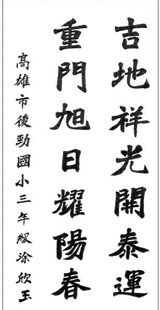 吉地祥光開泰運
重門旭日耀陽春
高雄市後勁國小三年級涂欣玉